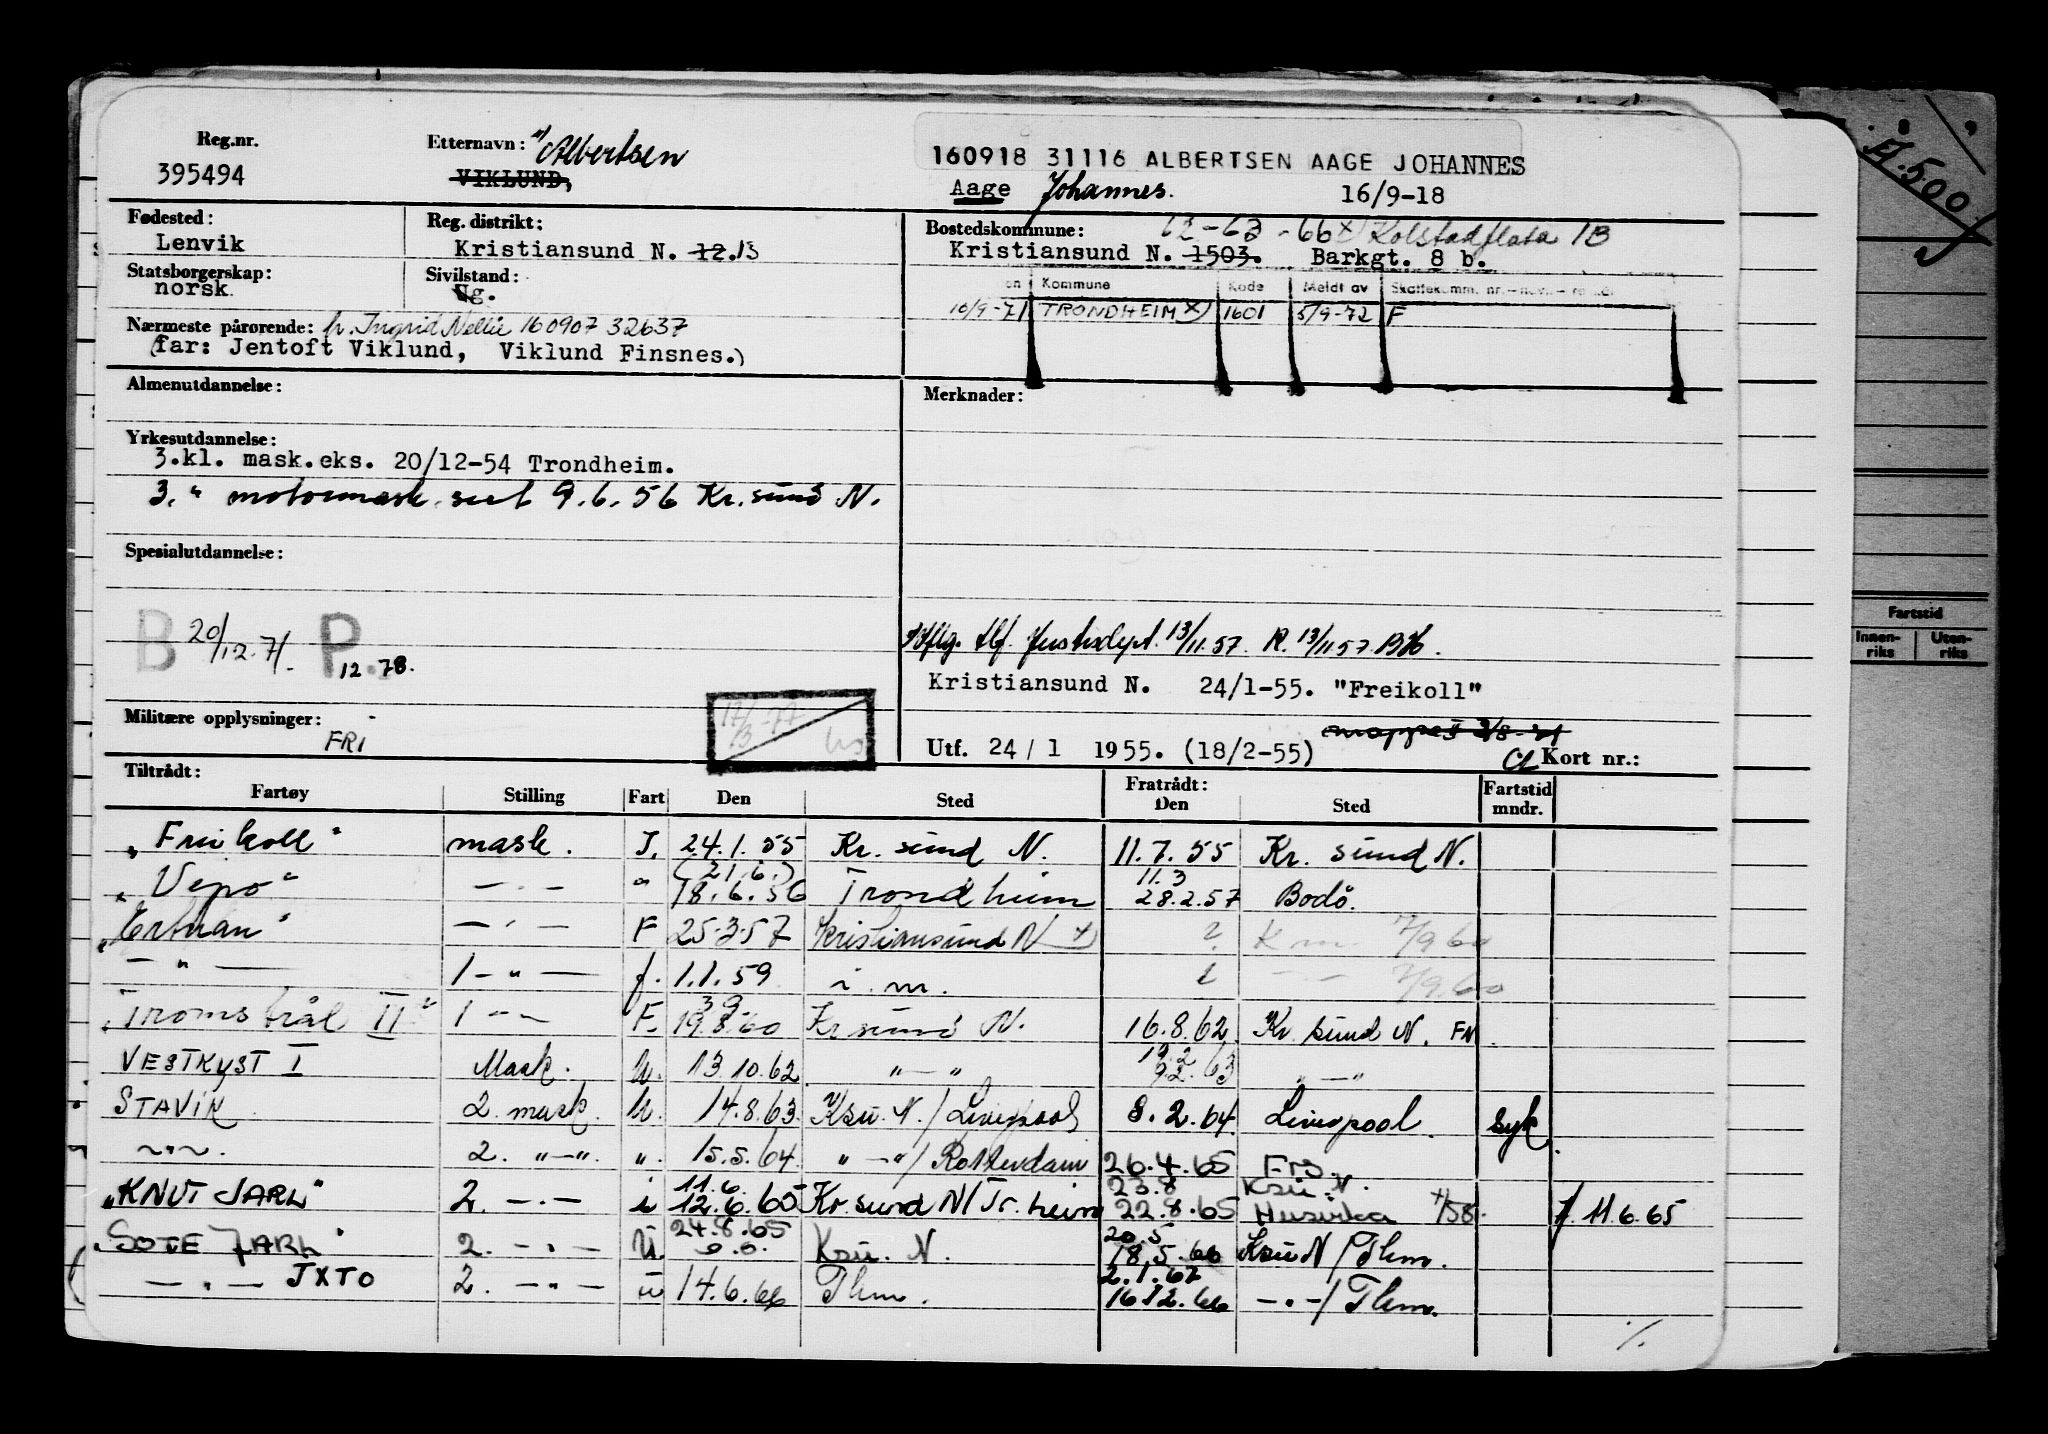 Reg.nr. Etternavn: x) Albertsen 160918 31116 ALBERTSEN AAGE JOHANNES
395494 VIKLUND, Aage Johannes. 16/9-18
Fødested: Reg. distrikt: Bostedskommune: 62-63-66 x) Kolstadflata 1B
Lenvik Kristiansund N. 12.13 Kristiansund N. 1503. Barkgt. 8 b.
Statsborgerskap: Sivilstand: en Kommune Kode Meldt av Skattekomm. nr.
norsk. Ug. 10/9-71 TRONDHEIM X) 1601 5/9-72 F
Nærmeste pårørende: h. Ingrid Nellie 160907 32637
(far: Jentoft Viklund, Viklund Finsnes.)
Almenutdannelse: Merknader:
Yrkesutdannelse:
3.kl. mask.eks. 20/12-54 Trondheim.
3. " motormask. sert 9.6.56 Kr.sund N.
Spesialutdannelse:
B 20/12.71. P. 12.78.
tlf. Justisdept. 13/11.57. R. 13/11 57.
Kristiansund N. 24/1-55. "Freikoll"
Militære opplysninger: FRI
17/3-77
Utf. 24/1 1955. (18/2-55) Kort nr.:
Tiltrådt: Fratrådt: Fartstid
Fartøy Stilling Fart Den Sted Den Sted mndr.
"Freikoll" mask. I. 24.1.55 Kr. sund N. 11.7.55 Kr. sund N.
"Vepo" — . — " (21.6.) 18.6.56 Trondheim 11.3 28.2.57 Bodø.
"Ertnan" — . — F 25.3.57 Kristiansund N x) ? K 7/9 60
— " — 1 — " — f. 1.1.59 i. m. — 7/9 60
"Tromstrål II" 1 — " — F. 3 9. 19.8.60 Kr sund N. 16.8.62 Kr sund N. FN
VESTKYST I Mask. U. 13.10.62 " — " 19.2 9.2.63 " — "
STAVIK 2. mask. U. 14.8.63 Ksu. N./Liverpool 8.2.64 Liverpool. syk.
~ " ~. 2. " — ". ". 15.5.64 " — "/ Rotterdam 26.4.65
"KNUT JARL" 2. — . — i 11.6. 12.6.65 Kr sund N/Tr. heim 23.8 22.8.65 Ksu. N. Husvika 7/58. f. 11.6.65
"SOTE JARL" 2. — . — U. 24.8.65 Ksu. N. 20.5 18.5.66 Ksu N/Thm.
— . — JXTO 2. — . — u 14.6.66 Thm. 2.1.67 16.12.66 — . —/Thm.
%
A.500
Fartstid
Innen-riks Uten-riks